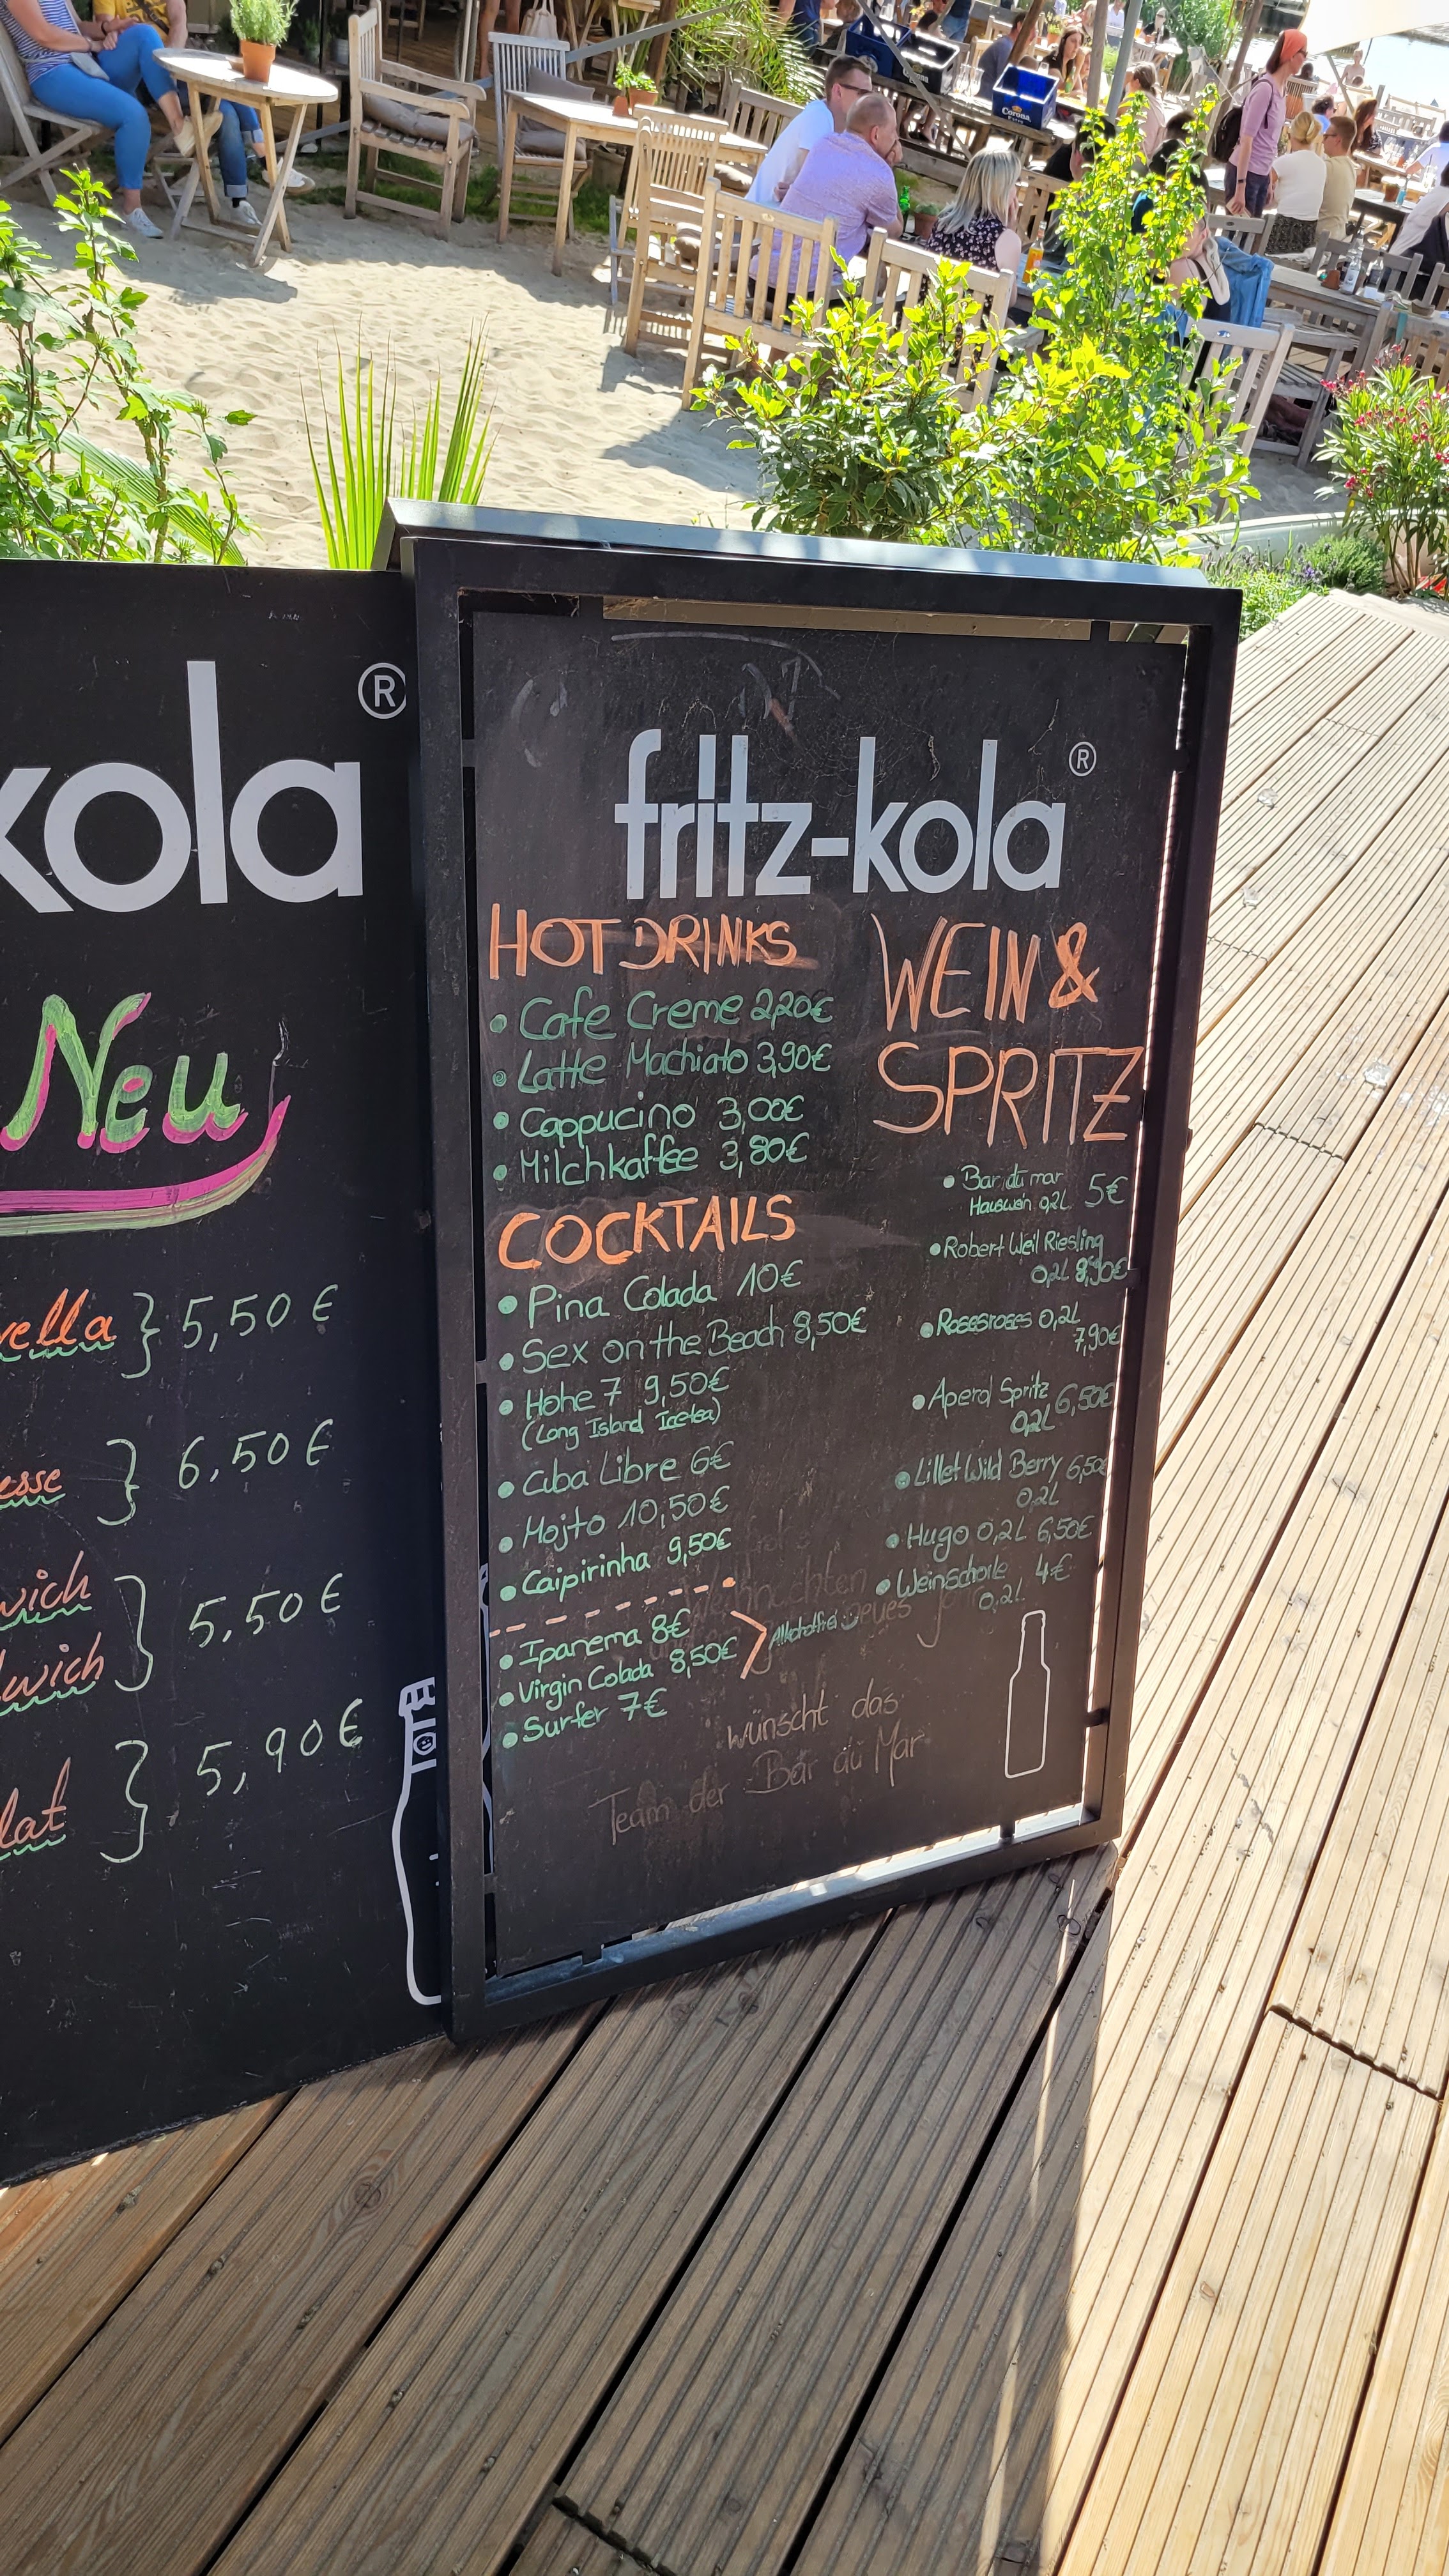 kola®
Neu
5,50 €
6,50 €
5,50 €
5,90 €
fritz-kola®
HOT DRINKS
• Cafe Creme 2,20€
• Latte Machiato 3,90€
• Cappucino 3,00€
• Milchkaffee 3,80€
COCKTAILS
• Pina Colada 10€
• Sex on the Beach 8,50€
• Hohe 7 9,50€
(Long Island Icetea)
• Cuba Libre 6€
• Mojto 10,50€
• Caipirinha 9,50€
• Ipanema 8€
• Virgin Colada 8,50€
• Surfer 7€
Alkoholfrei
WEIN &
SPRITZ
• Bar du mar
Hauswein 0,2L 5€
• Robert Weil Riesling
0,2L
0,2L
7,90€
• Aperol Spritz 6,50€
0,2L
• Lillet Wild Berry 6,50€
0,2L
• Hugo 0,2L 6,50€
• Weinschorle 4€
0,2L
Weihnachten
neues
wünscht das
Team der Bar du Mar
Corona